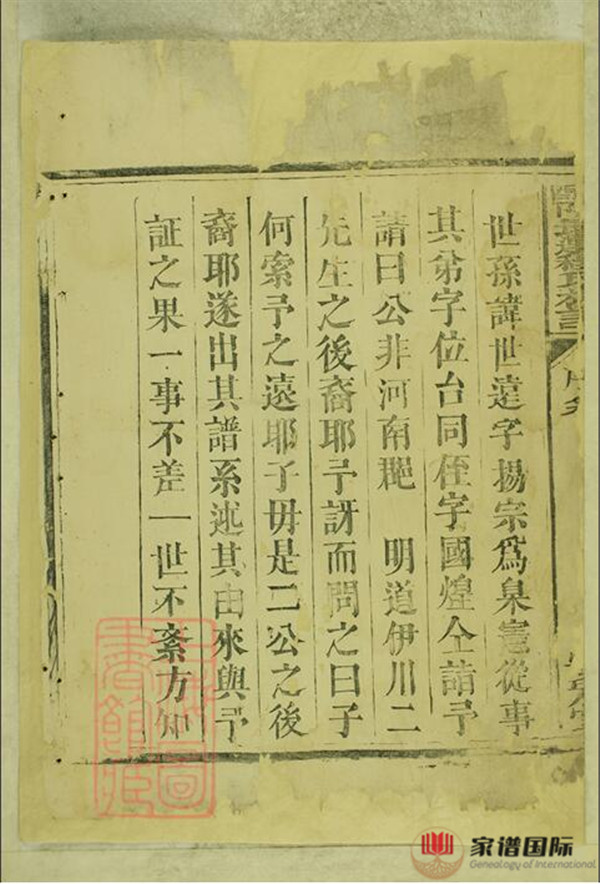 世孫諱世逵字揚宗爲臬憲從事
其弟字位台同侄字國煌仝請予
請曰公非河南䣊 明道伊川二
先生之後裔耶予訝而問之曰子
何索予之遠耶子毋是二公之後
裔耶遂出其譜系述其由來與予
証之果一事不差一世不紊方知
家谱国际
Genealogy of International